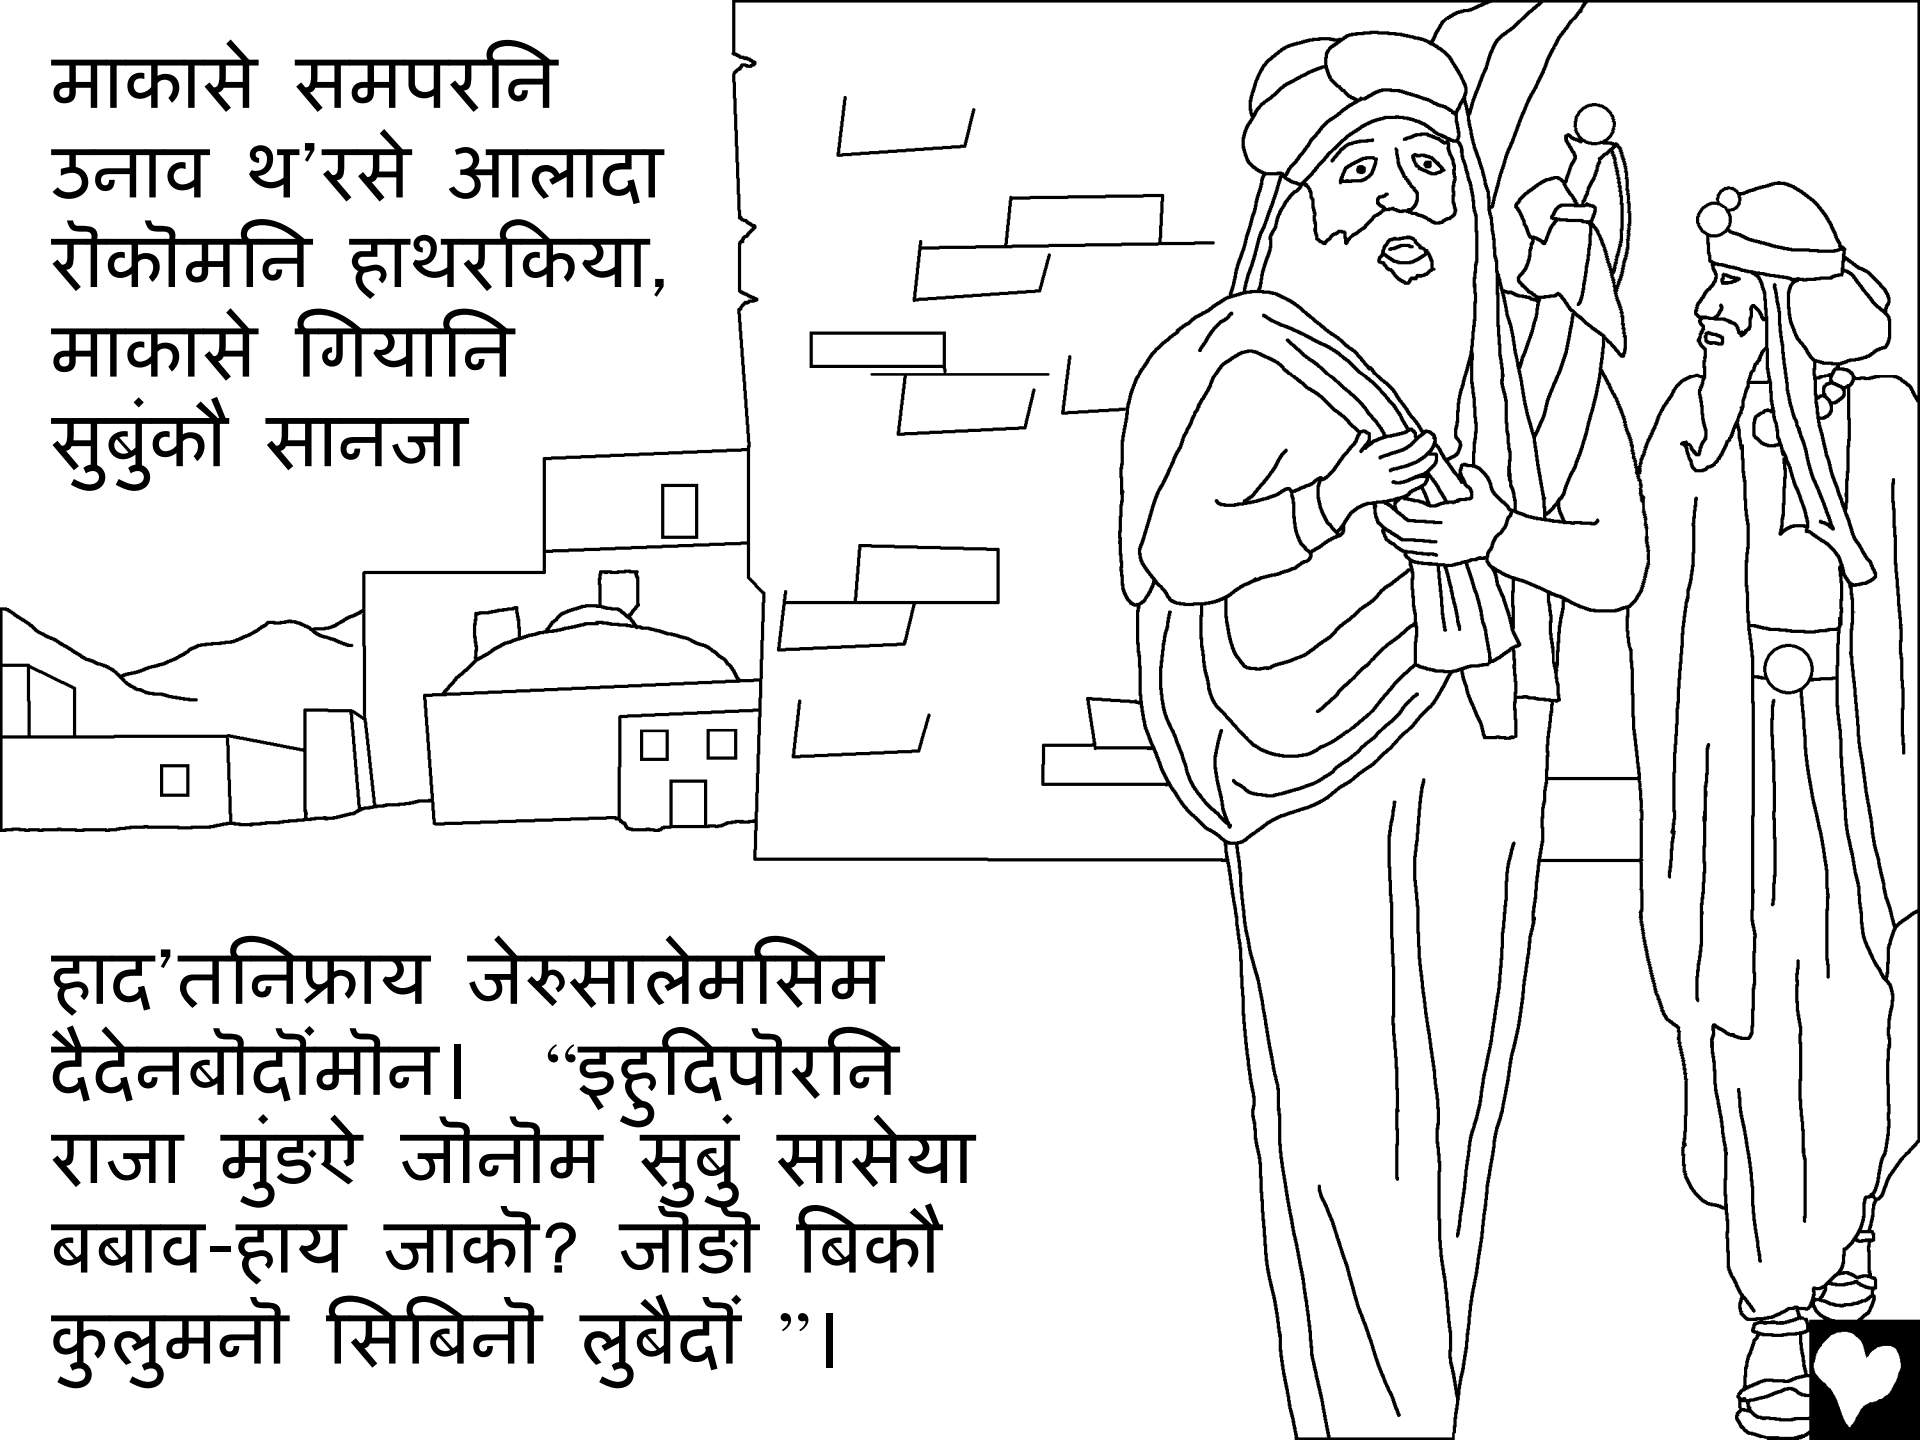 माकासे समपरनि
उनाव थ’रसे आलादा
रॊकॊमनि हाथरकिया,
माकासे गियानि
सुबुंकौ सानजा
हाद’तनिफ्राय जेरुसालेमसिम
दैदेनबॊदॊंमॊन। “इहुदिपॊरनि
राजा मुंङऐ जॊनॊम सुबुं सासेया
बबाव-हाय जाकॊ? जॊङॊ बिकौ
कुलुमनॊ सिबिनॊ लुबैदॊं ”।